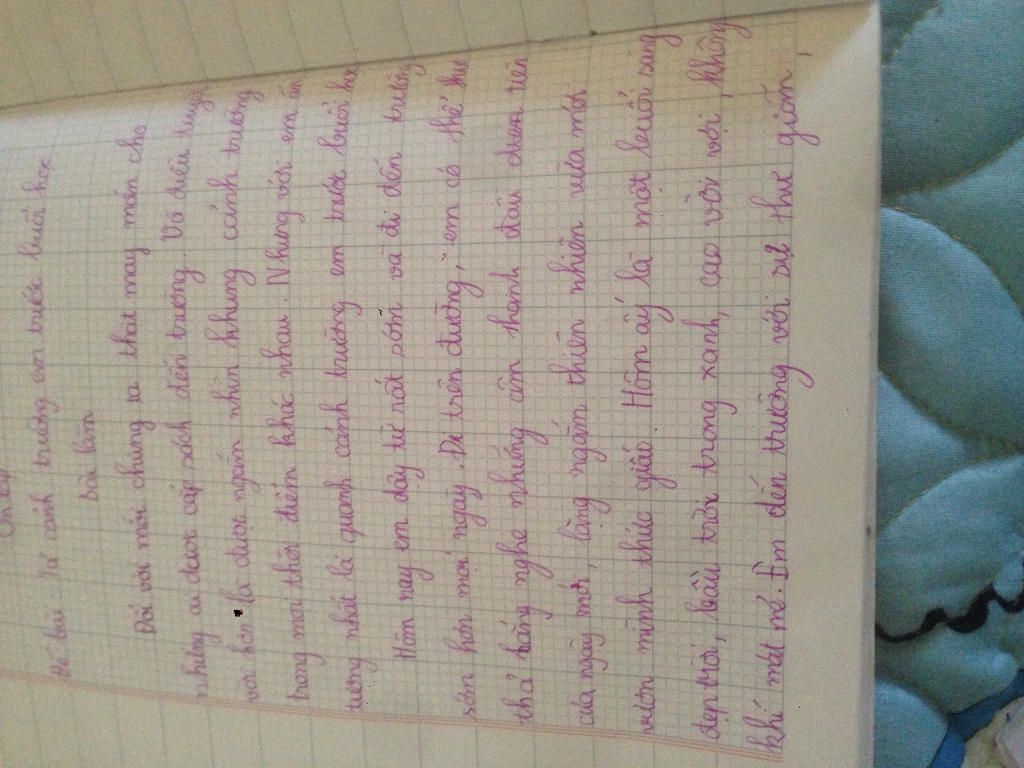 Đề bài: Tả cảnh trường em trước buổi học
Bài làm
Đối với mỗi chúng ta thật may mắn cho
những ai được cắp sách đến trường. Và điều tuyệt
vời hơn là được ngắm nhìn khung cảnh trường
trong mọi thời điểm khác nhau. Nhưng với em ấn
tượng nhất là quanh cảnh trường em trước buổi học
Hôm nay em dậy từ rất sớm và đi đến trường
sớm hơn mọi ngày. Đi trên đường, em có thể thư
thả lắng nghe những âm thanh đầu tiên
của ngày mới, lặng ngắm thiên nhiên vừa mới
vươn mình thức giấc. Hôm ấy là một buổi sáng
đẹp trời, bầu trời trong xanh, cao vời vợi, không
khí mát mẻ. Em đến trường với sự thư giãn,